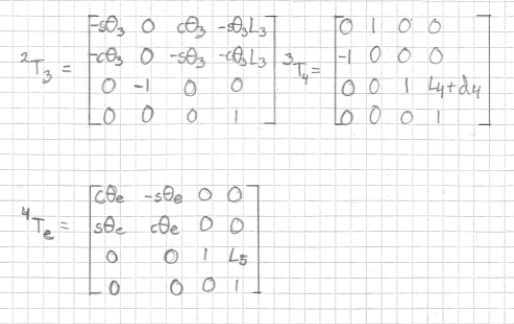 ²T₃ = [-sθ₃ 0 cθ₃ -sθ₃L₃
-cθ₃ 0 -sθ₃ -cθ₃L₃
0 -1 0 0
0 0 0 1]
³T₄ = [0 1 0 0
-1 0 0 0
0 0 1 L₄+d₄
0 0 0 1]
⁴Tₑ = [cθₑ -sθₑ 0 0
sθₑ cθₑ 0 0
0 0 1 L₅
0 0 0 1]